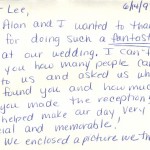 Lee, 6/14/9
Alan and I wanted to tha
for doing such a fantast
at our wedding. I can't
you how many people ca
to us and asked us wh
found you and how muc
you made the reception!
helped make our day very
ial and memorable!
We enclosed a picture we th